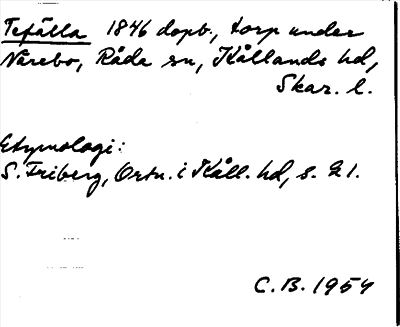 Tefälla 1846 dopb., torp under
Nårebo, Råda sn, Kållands hd,
Skar. l.
Etymologi:
S. Friberg, Ortn. i Kåll. hd, s. 21.
C.B. 1954